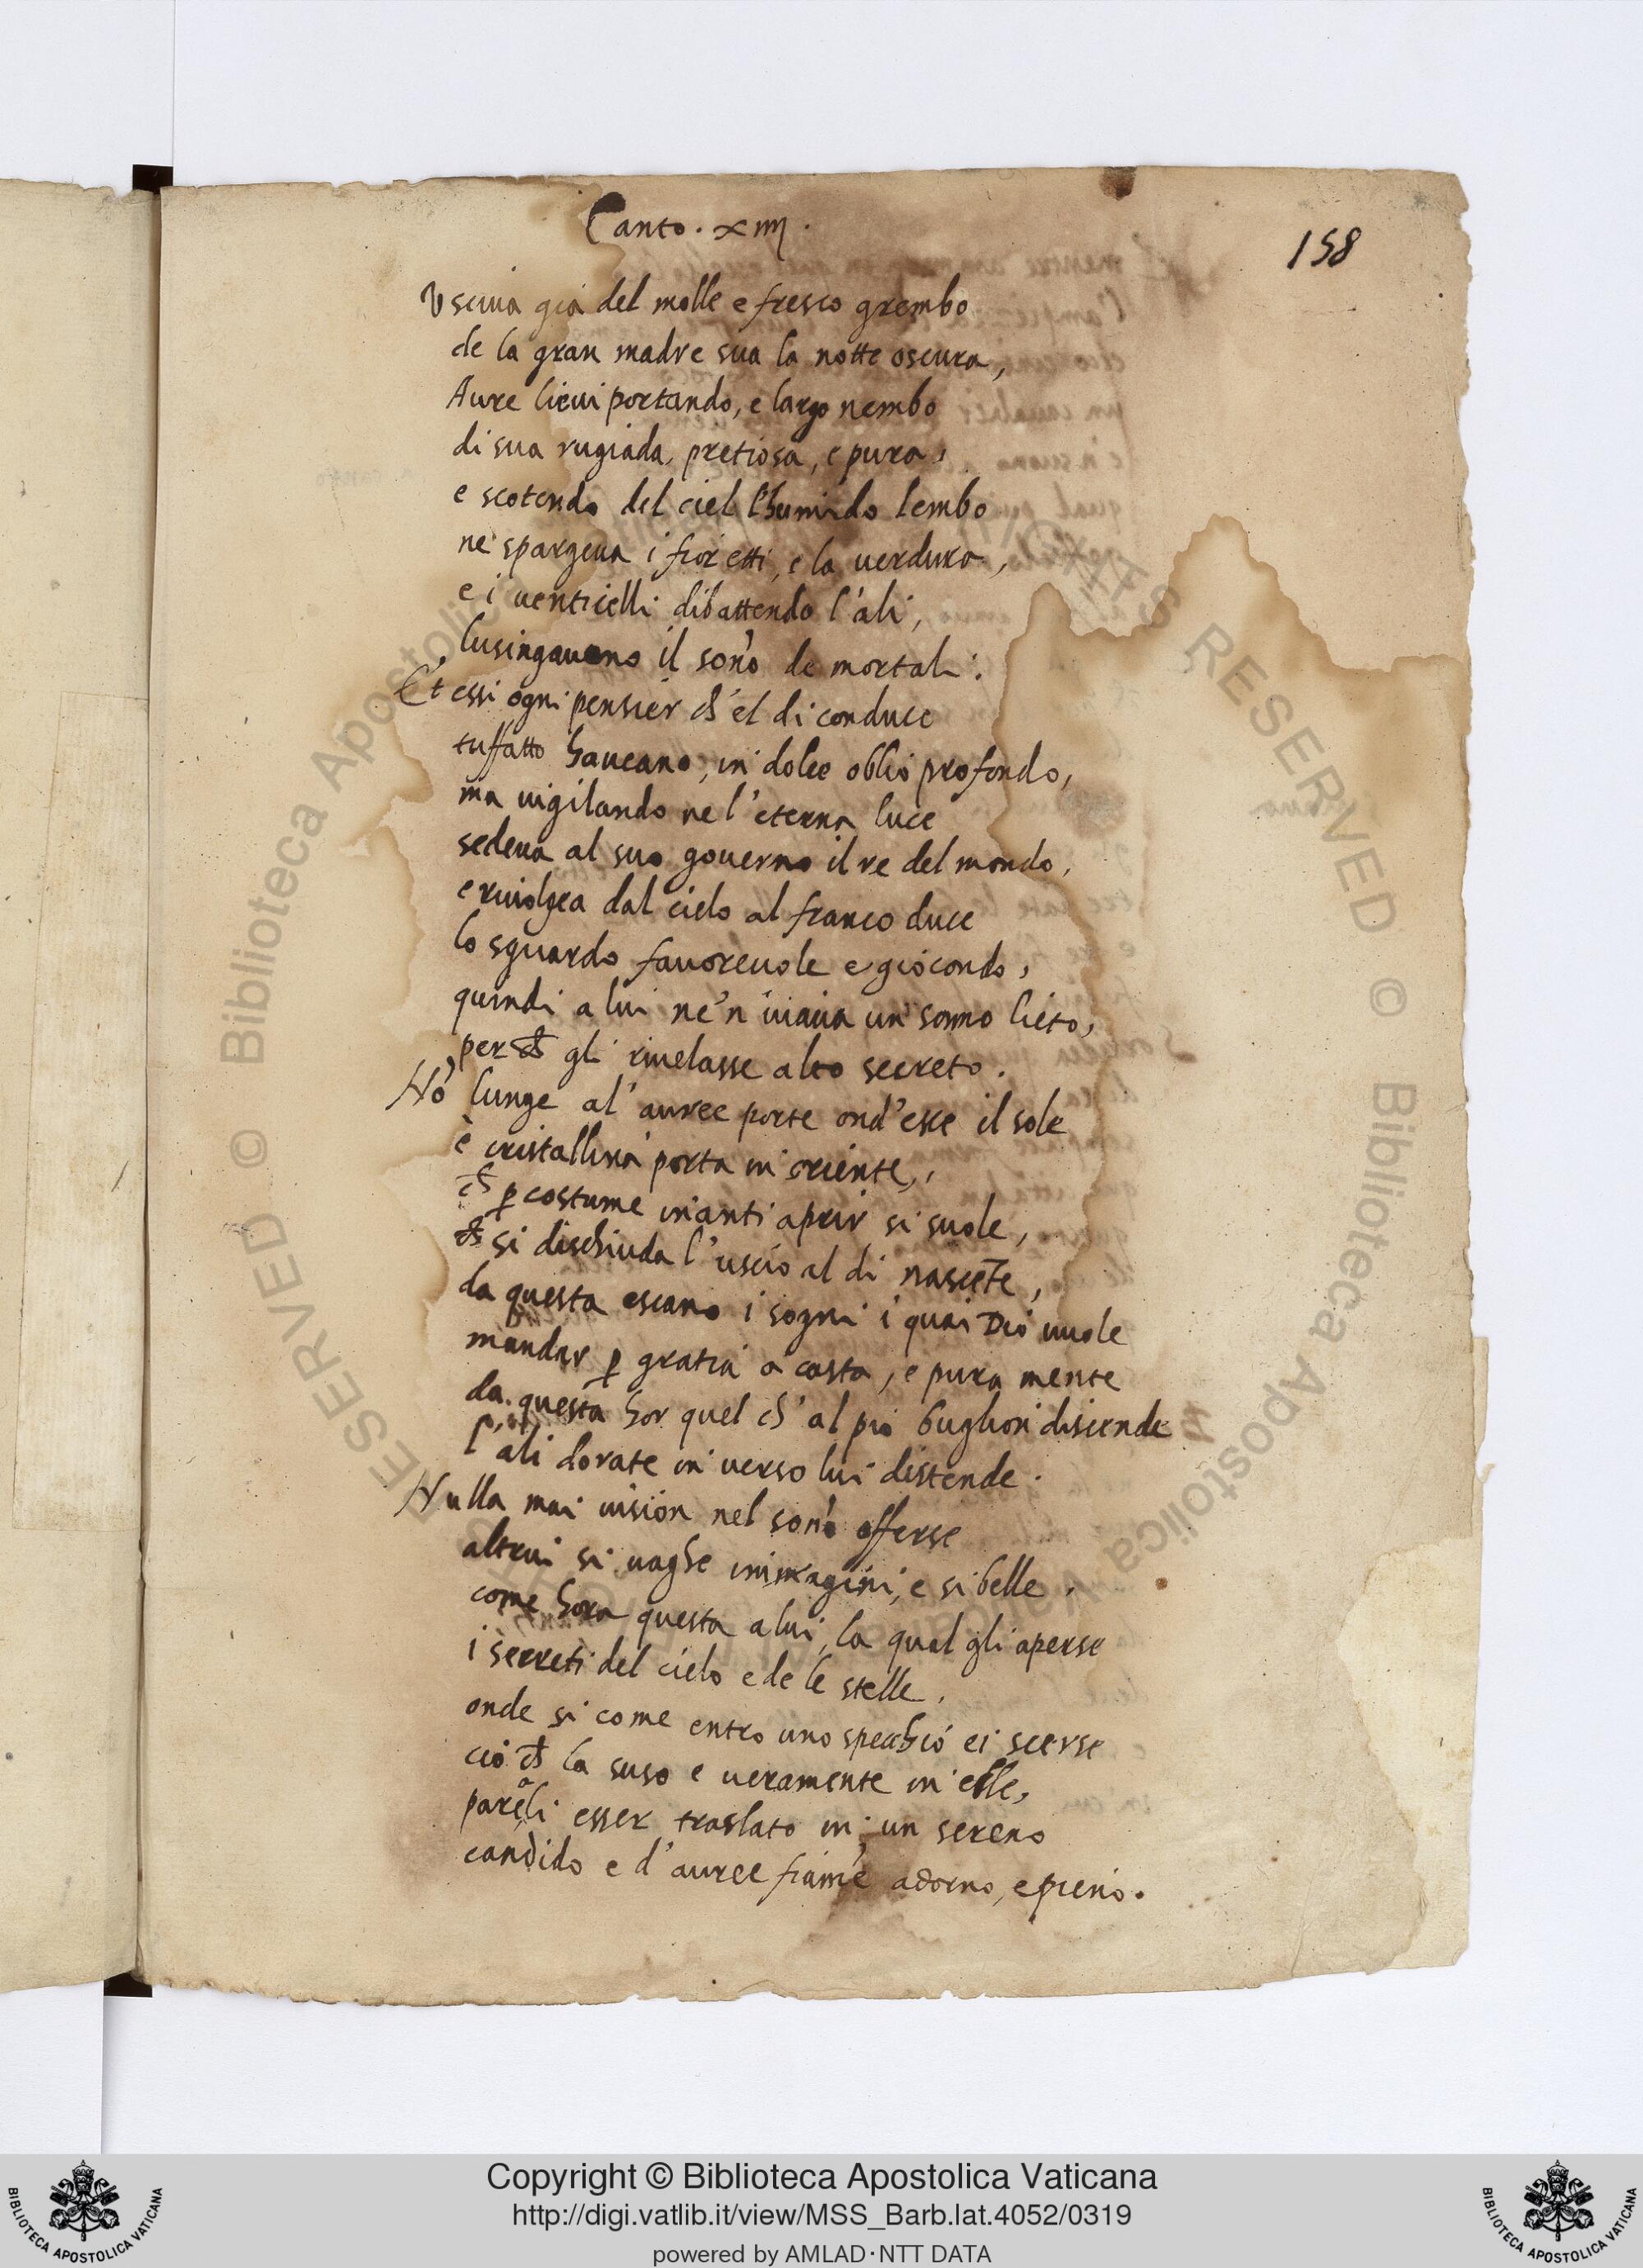 Canto. xiiij.
158
Vsciua gia del molle e fresco grembo
de la gran madre sua la notte oscura,
Aure lieui portando, e largo nembo
di sua rugiada, pretiosa, e pura,
e scotendo del ciel l'humido lembo
ne spargeua i fioretti, e la uerdura,
e i uenticelli dibattendo l'ali,
lusingauano il sonō de mortali.
Et essi ogni pensier ch̄'el di conduce
tuffatto haueano, in dolce oblio profondo,
ma uigilando ne l'eterna luce
sedeua al suo gouerno il re del mondo,
e riuolgea dal cielo al franco duce
lo sguardo fauoreuole e giocondo,
quindi a lui ne'n uiaua un sonno lieto,
perch̄ gli riuelasse alto secreto.
Nō lunge al'auree porte ond'esce il sole
è cristallina porta in oriente,
ch̄ ꝑ costume inanti aprir si suole,
ch̄ si dischiuda l'uscio al di nascēte,
da questa escano i sogni i quai Dio uuole
mandar ꝑ gratia a casta, e pura mente
da questa hor quel ch̄'al pio buglion discende
l'ali dorate in uerso lui distende.
Nulla mai uision nel sonō offerse
altrui si uaghe immagini, e si belle.
come hora questa a lui, la qual gli aperse
i secreti del cielo e de le stelle.
onde si come entro uno specchio ei scerse
ciò ch̄ la suso e ueramente in elle,
pareali esser traslato in un sereno
candido e d'auree fiam̄e adorno, e pieno.
© Biblioteca Apostolica Vaticana
RIGHTS RESERVED
Copyright © Biblioteca Apostolica Vaticana
http://digi.vatlib.it/view/MSS_Barb.lat.4052/0319
powered by AMLAD·NTT DATA
BIBLIOTECA APOSTOLICA VATICANA
BIBLIOTECA APOSTOLICA VATICANA